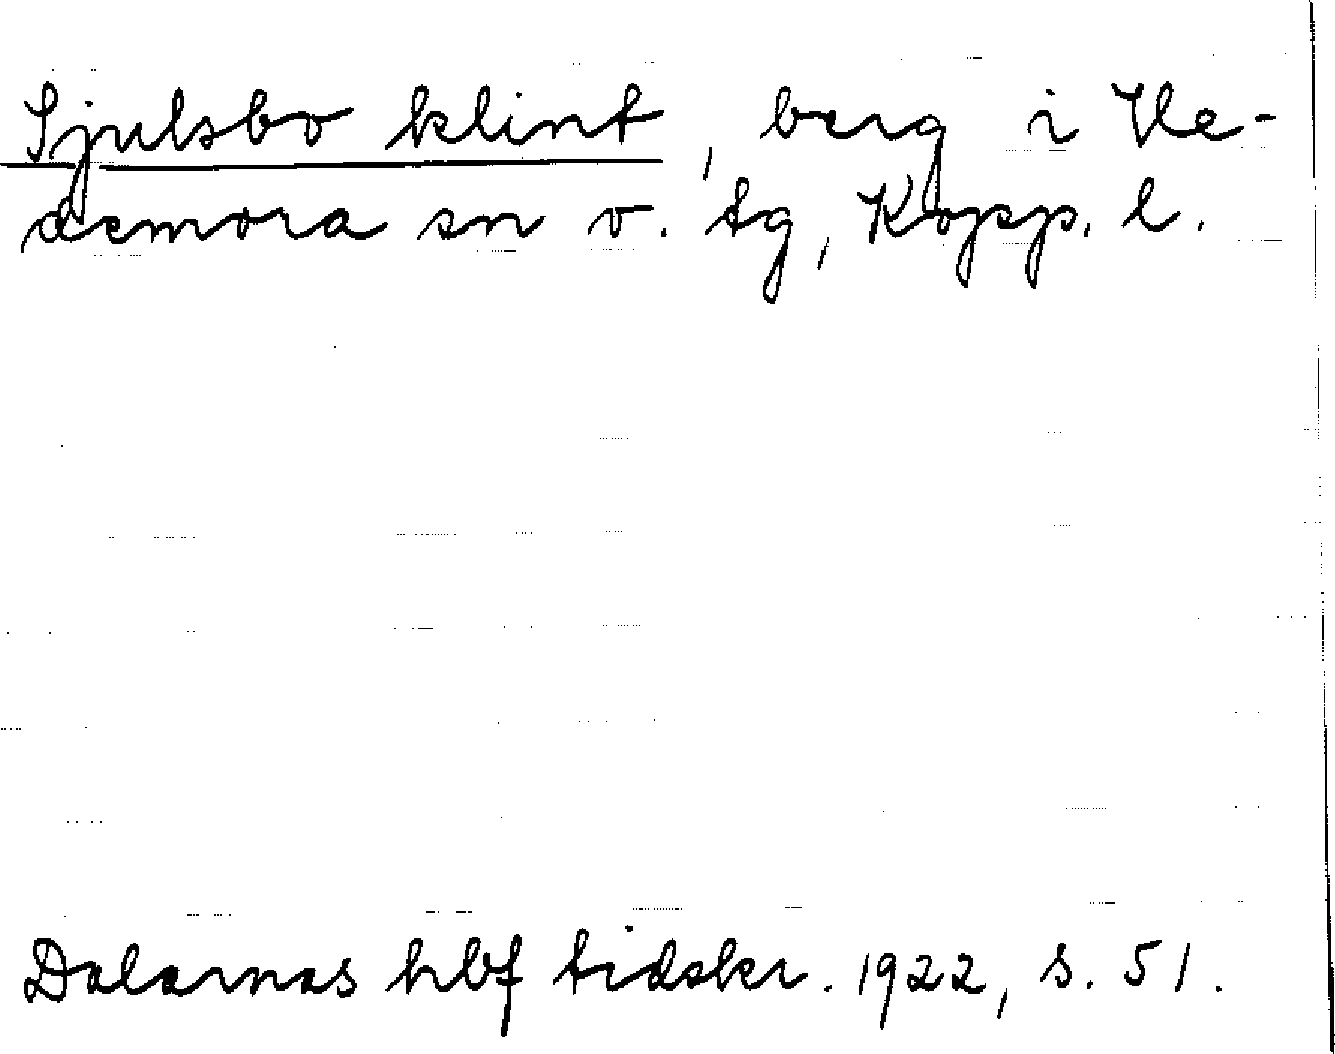 Sjulsbo klint, berg i He-
demora sn o. tg, Kopp. l.
Dalarnas hbf tidskr. 1922, s. 51.